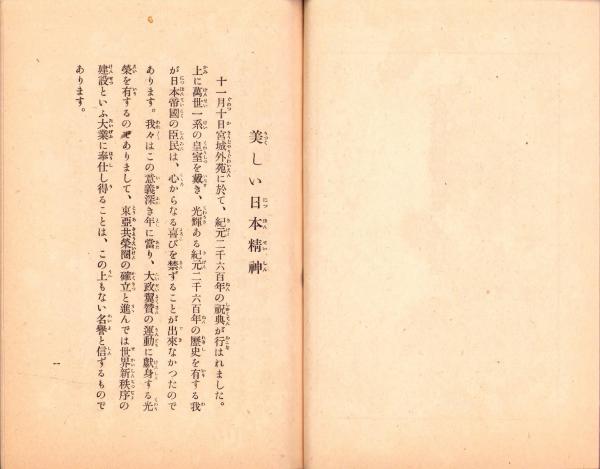 美しい日本精神
十一月十日宮城外苑に於て、紀元二千六百年の祝典が行はれました。
上に萬世一系の皇室を戴き、光輝ある紀元二千六百年の歷史を有する我
が日本帝國の臣民は、心からなる喜びを禁ずることが出來なかつたので
あります。我々はこの意義深き年に當り、大政翼贊の運動に獻身する光
榮を有するのでありまして、東亞共榮圈の確立と進んでは世界新秩序の
建設といふ大業に奉仕し得ることは、この上もない名譽と信ずるもので
あります。
一